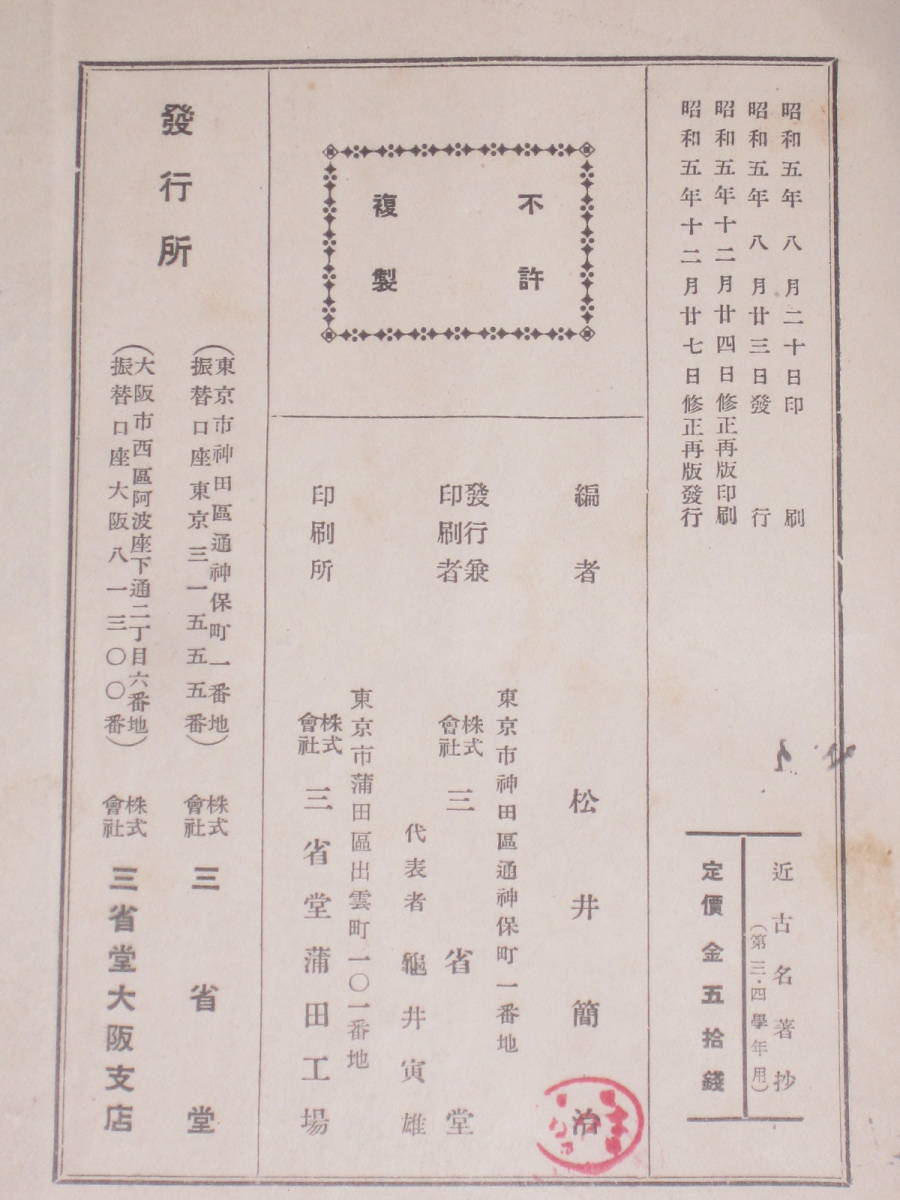 昭和五年八月二十日印刷
昭和五年八月廿三日發行
昭和五年十二月廿四日修正再版印刷
昭和五年十二月廿七日修正再版發行
近古名著抄
(第三・四學年用)
定價金五拾錢
不許
複製
編者 松井簡治
東京市神田區通神保町一番地
發行兼
印刷者
株式
會社
三省堂
代表者 龜井寅雄
東京市蒲田區出雲町一〇一番地
印刷所
株式
會社
三省堂蒲田工場
發行所
(東京市神田區通神保町一番地
振替口座東京三一五五五番)
株式
會社
三省堂
(大阪市西區阿波座下通二丁目六番地
振替口座大阪八一三〇〇番)
株式
會社
三省堂大阪支店